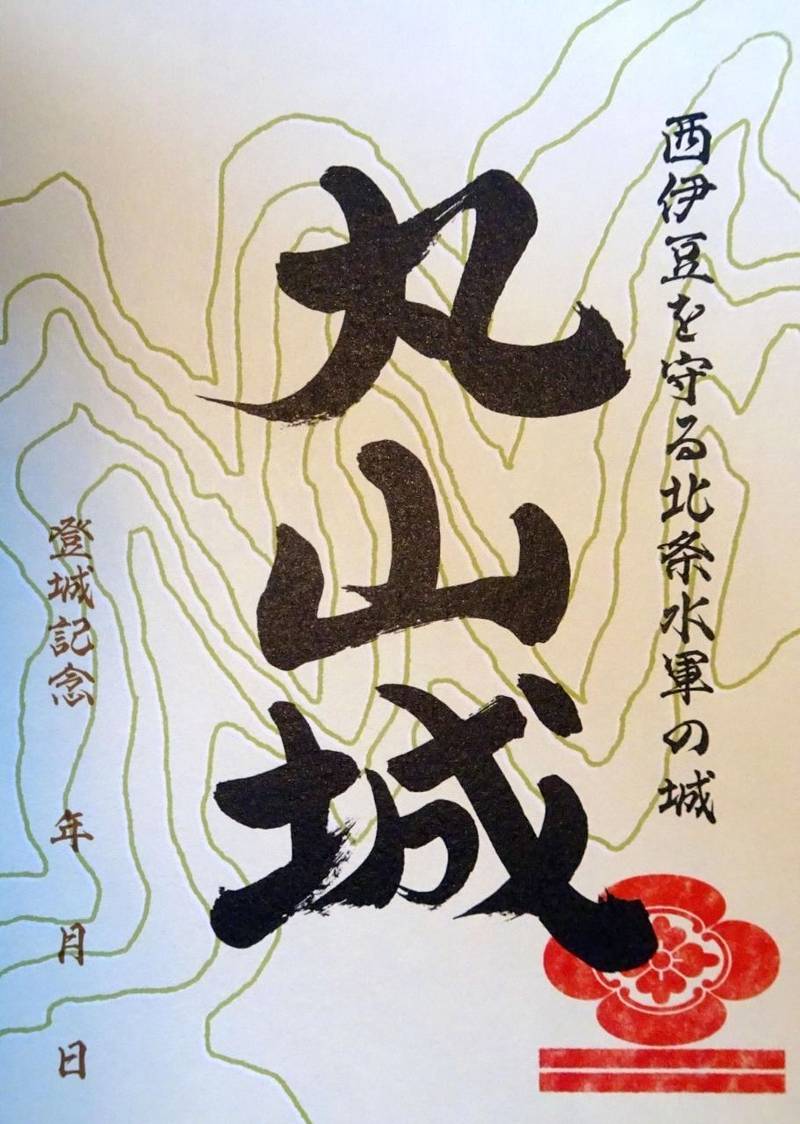 西伊豆を守る北条水軍の城
丸山城
登城記念
年 月 日